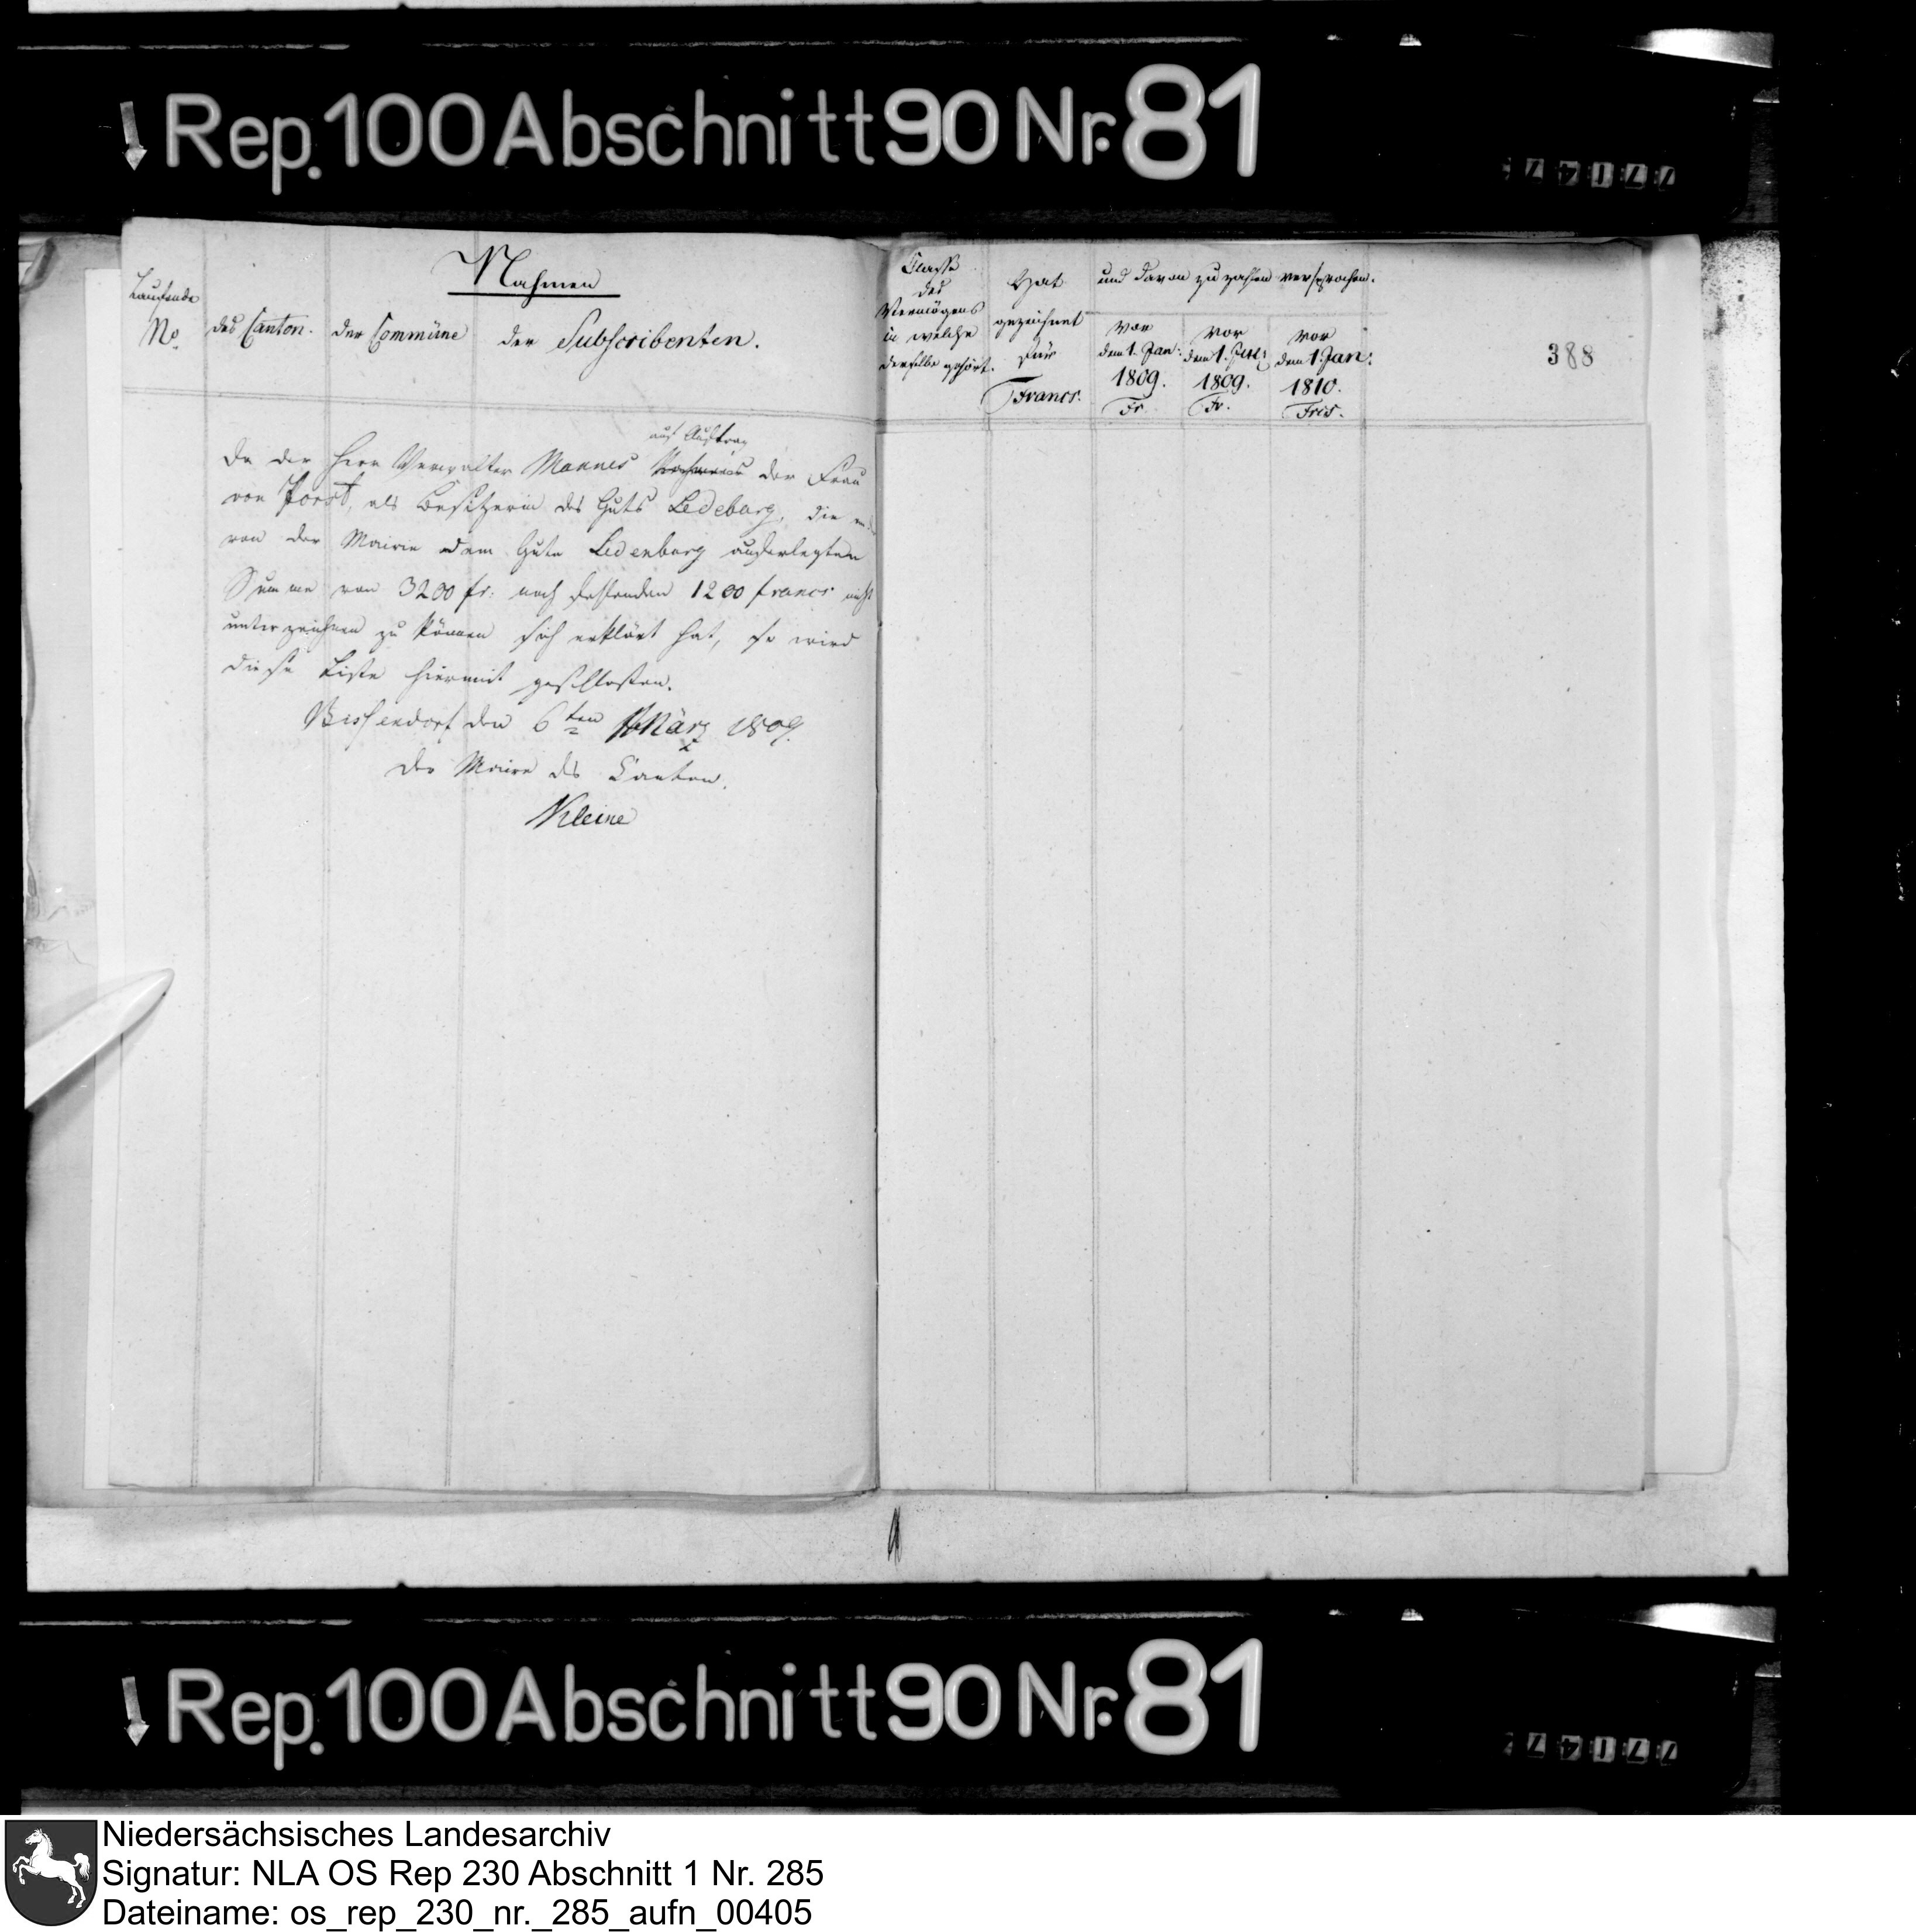 Rep. 100 Abschnitt 90 Nr. 81
Nahmen
Laufende
No.
des Canton.
der Commüne
der Subscribenten.
Classe
des
Vermögens
in welche
derselbe gehört.
Hat
gezeichnet
für
Francs.
und davon zu zahlen versprochen.
vor
dem 1. Jan:
1809.
Fr.
vor
dem 1. Jul:
1809.
Fr.
vor
dem 1. Jan:
1810.
Frcs.
388
auf Auftrag
Da der Herr Verwalter Mannes der Frau
von Porst, als Besitzerin des Guts Ledebarg, die
von der Mairie dem Gute Ledenburg auferlegten
Summe von 3200 fr: noch fehlenden 1200 francs nicht
unterzeichnen zu können sich erklärt hat, so wird
diese Liste hiermit geschlossen.
Bissendorf den 6ten März 1809.
Der Maire des Canton.
Kleine
Rep. 100 Abschnitt 90 Nr. 81
Niedersächsisches Landesarchiv
Signatur: NLA OS Rep 230 Abschnitt 1 Nr. 285
Dateiname: os_rep_230_nr._285_aufn_00405